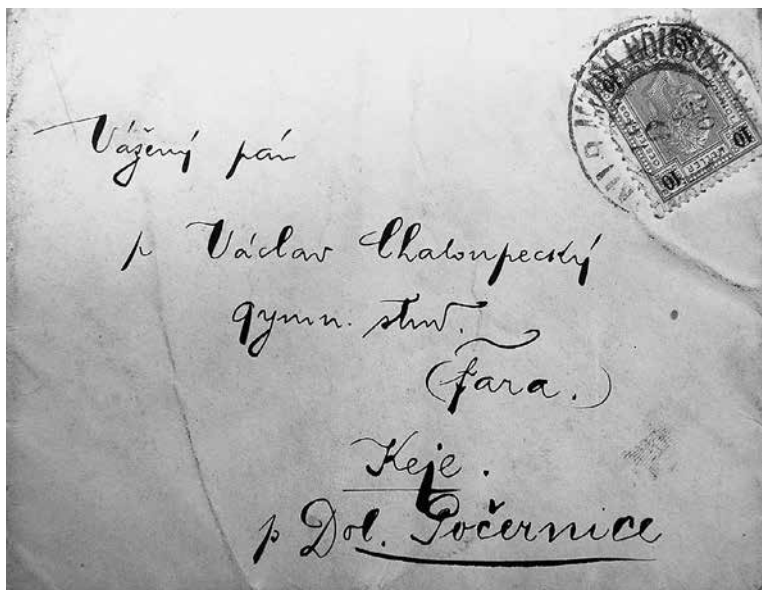 Vážený pán
p Václav Chaloupecký
gymn. stud.
(fara.)
Keje.
p Dol. Počernice
10
10
10